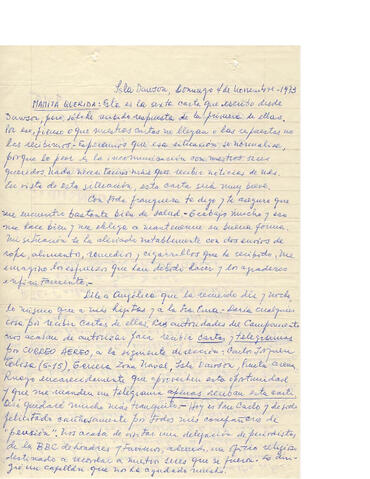 Isla Dawson, Domingo 4 de Noviembre - 1973
MAMITA QUERIDA: Esta es la sexta carta que escribo desde
Dawson, pero sólo he recibido respuesta de la primera de ellas.
Por eso, pienso o que nuestras cartas no llegan o las respuestas no
las recibimos. Esperamos que esa situación se normalice,
porque lo peor es la incomunicación con nuestros seres
queridos. Nada necesitamos más que recibir noticias de uds.
En vista de esta situación, esta carta será muy breve.
Con toda franqueza te digo y te aseguro que
me encuentro bastante bien de salud. Trabajo mucho y eso
me hace bien y me obliga a mantenerme en buena forma.
Mi situación se ha aliviado notablemente con dos envíos de
ropa, alimentos, remedios y cigarrillos que he recibido. Me
imagino los esfuerzos que han debido hacer y los agradezco
infinitamente.
Dile a Angélica que la recuerdo día y noche
lo mismo que a mis hijitas y a la
cosa por recibir cartas de ellas. Las autoridades del Campamento
nos acaban de autorizar para recibir cartas y telegramas
por CORREO AEREO, a la siguiente dirección: Carlos
(S-15), Tercera Zona Naval, Isla Dawson, Punta Arenas.
Ruego encarecidamente que aprovechen esta oportunidad
y que me manden un telegrama apenas reciban esta carta.
Así quedaré mucho más tranquilo. Hoy es San Carlo y he sido
felicitado cariñosamente por todos mis compañeros de
"pensión". Nos acaba de visitar una delegación de periodistas,
de la BBC de Londres y tuvimos, además, un oficio religioso
destinado a recordar a nuestros seres que se fueron. Lo
un capellán que nos ha ayudado mucho.